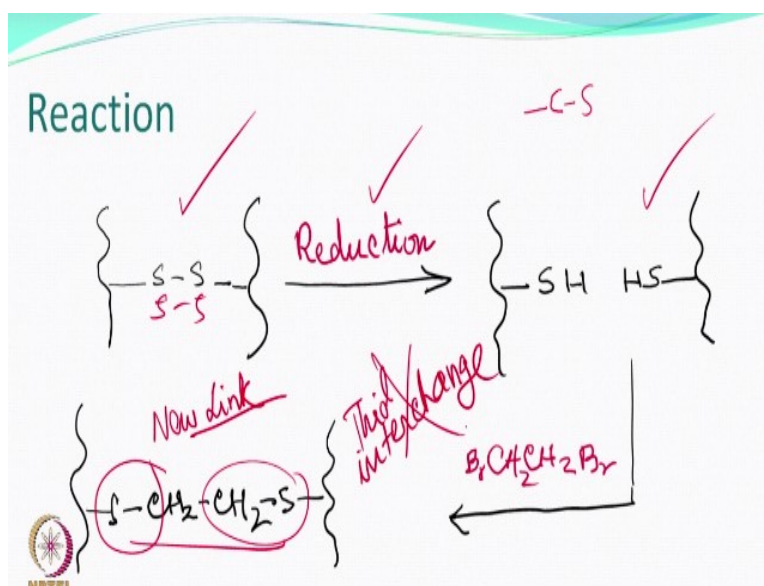 Reaction
-C-S
S-S
S-S
Reduction
SH HS
New Link
Thiol
interchange
BrCH2CH2Br
S-CH2-CH2-S
NPTEL